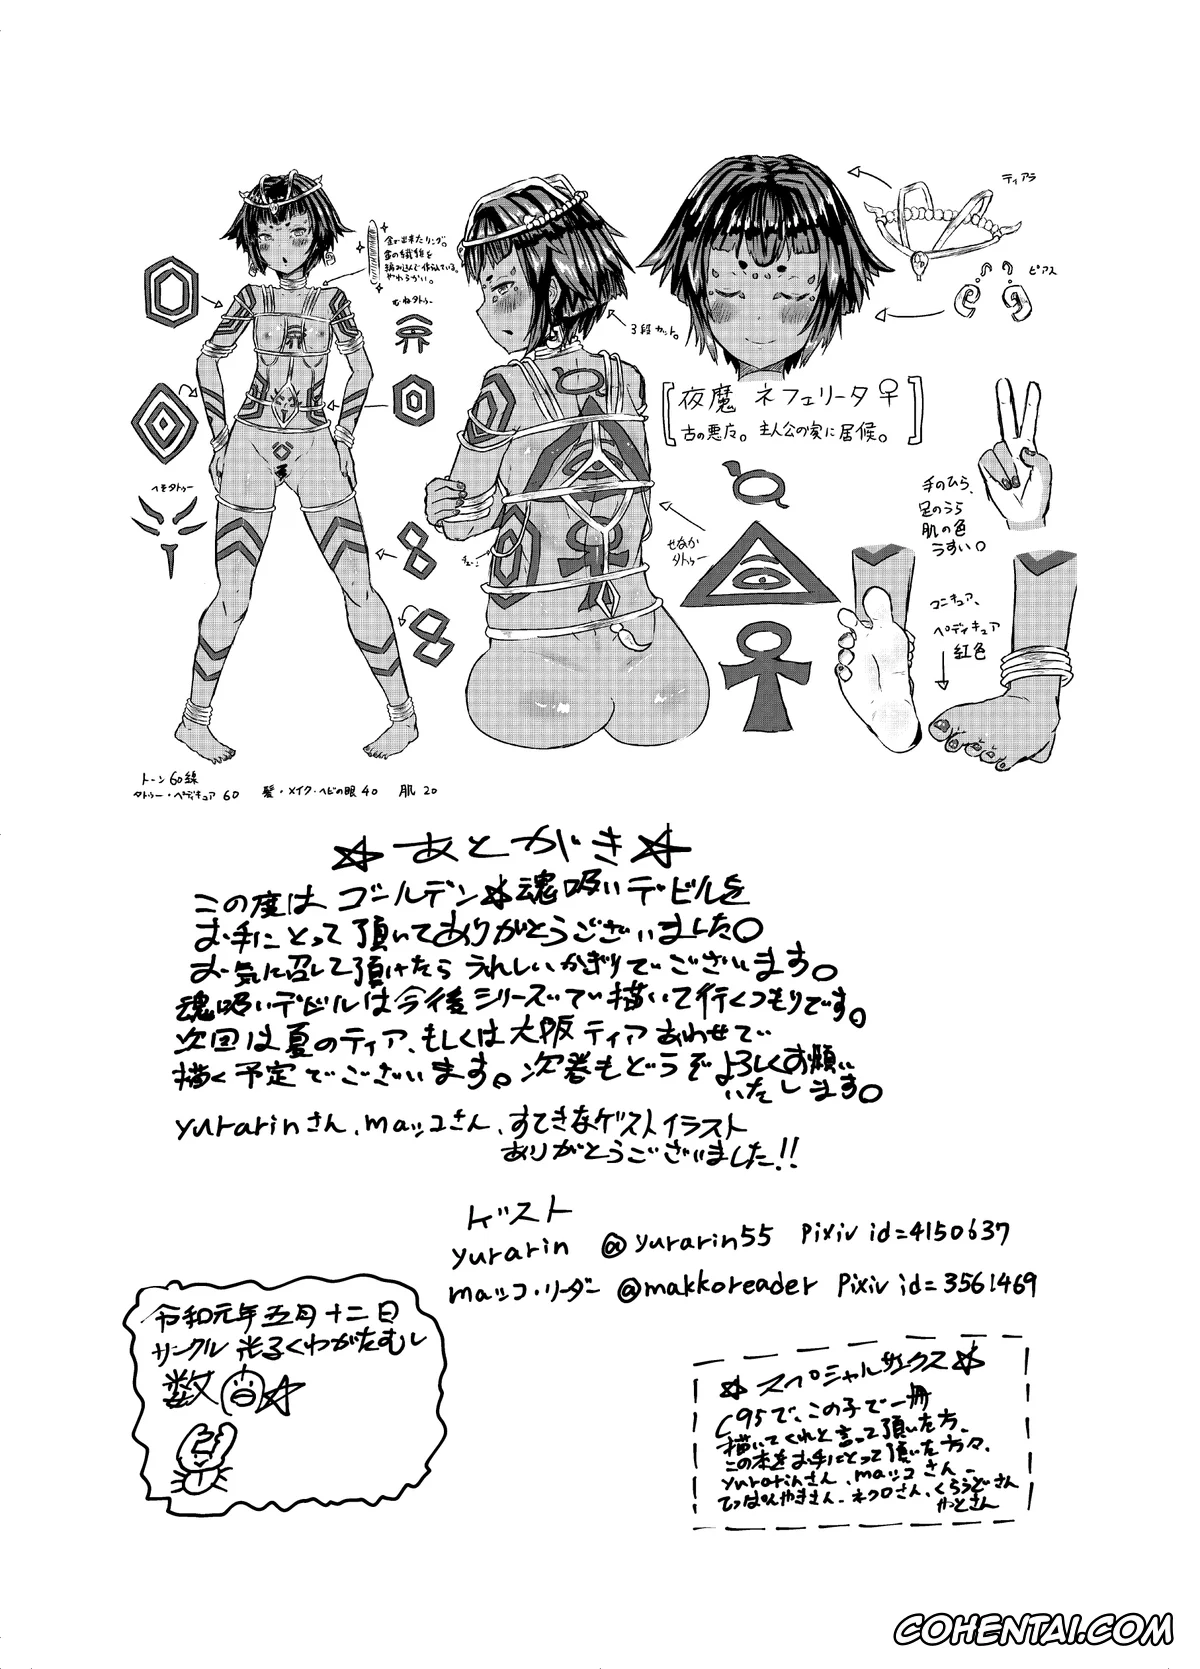 ティアラ
ピアス
金で出来たリング。
雷の繊維を
編み込んで作られている。
やわらかい。
むねタトゥー
3段カット。
[夜魔 ネフェリータ♀
古の悪魔。主人公の家に居候。]
手のひら、
足のうら
肌の色
うすい。
へそタトゥー
せなか
タトゥー
マニキュア、
ペディキュア
紅色
トーン60線
タトゥー・ペディキュア 60 髪・メイク・ヘビの眼 40 肌 20
☆あとがき☆
この度はゴールデン☆魂吸いデビルを
お手にとって頂いてありがとうございました。
お気に召して頂けたらうれしいかぎりでございます。
魂吸いデビルは今後シリーズで描いて行くつもりです。
次回は夏のティア、もしくは大阪ティアあわせで
描く予定でございます。次巻もどうぞよろしくお願い
いたします。
yurarinさん、mαッコさん、すてきなゲストイラスト
ありがとうございました!!
ゲスト
yurarin @yurarin55 Pixiv id=4150637
mαッコ・リーダー @makkoreader Pixiv id=3561469
令和元年五月十二日
サークル 光るくわがたむし
数
☆スペシャルサンクス☆
C95で、この子で一冊
描いてくれと言って頂いた方、
この本をお手にとって頂いた方々、
yurarinさん、mαッコさん、
てっぱんやきさん、ネクロさん、くらうどさん
やっとさん
COHENTAI.COM